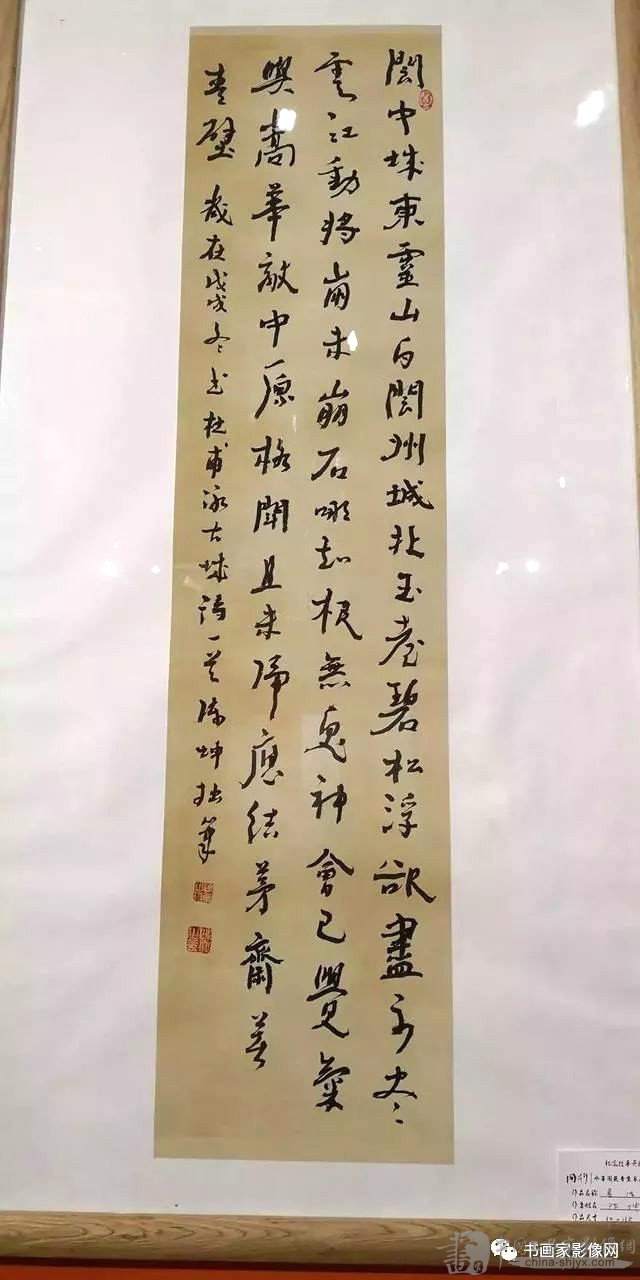 閬中城東靈山白閬州城北玉臺碧松浮欲盡不尽
雲江動將崩未崩石哪知根無鬼神會已覺氣
與嵩華敵中原格鬥且未歸應結茅齋著
青壁 歲在戊戌冬书杜甫詠古城詩一首陳坤拙筆
作品名称
作者姓名
作品尺寸
书画家影像网
china-shjyx.com